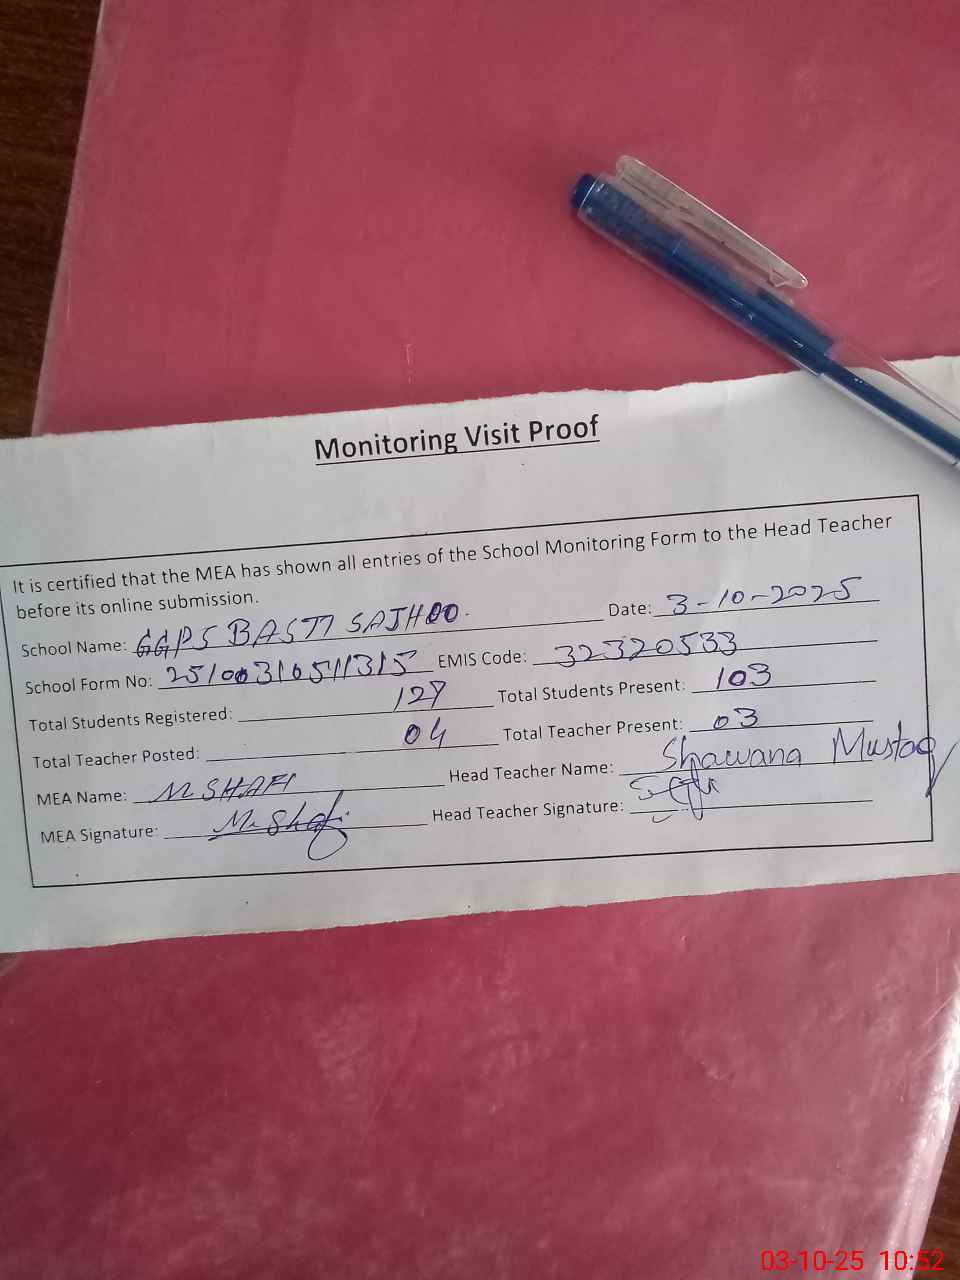 Monitoring Visit Proof
It is certified that the MEA has shown all entries of the School Monitoring Form to the Head Teacher
before its online submission.
School Name: GGPS BASTI SAJHOO. Date: 3-10-2025
School Form No: 25100310511315 EMIS Code: 32320533
Total Students Registered: 127 Total Students Present: 103
Total Teacher Posted: 04 Total Teacher Present: 03
MEA Name: M SHAFI Head Teacher Name: Shawana Mustaq
MEA Signature: M. Shafi Head Teacher Signature:
03-10-25 10:52